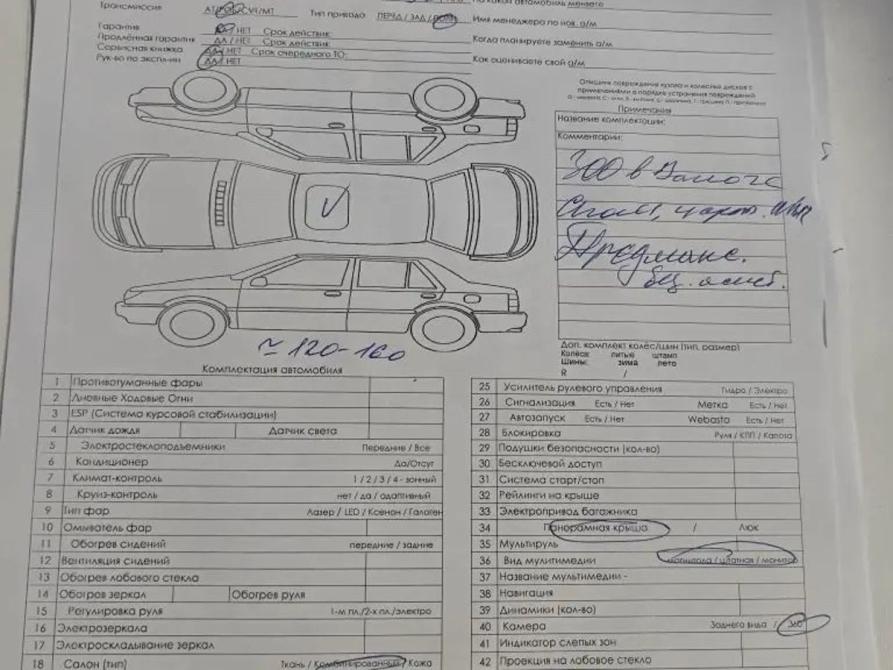 Трансмиссия АТ/РОБ/CVT/МТ Тип привода ПЕРЕД / ЗАД / ПОЛН Имя менеджера по нов. а/м
Гарантия ДА / НЕТ Срок действия:
Продлённая гарантия ДА / НЕТ Срок действия: Когда планируете заменить а/м
Сервисная книжка ДА / НЕТ Срок очередного ТО:
Рук-во по экспл-ии ДА / НЕТ Как оцениваете свой а/м
Опишите повреждения кузова и колесных дисков с
примечаниями о порядке устранения повреждений
Примечания
Название комплектации:
Комментарии:
300 в залоге
Предманс.
без. осмот.
≈ 120-160
Доп. комплект колёс/шин (тип, размер)
Колёса: литые штамп
Шины: зима лето
R /
Комплектация автомобиля
1 Противотуманные фары
2 Дневные Ходовые Огни
3 ESP (Система курсовой стабилизации)
4 Датчик дождя Датчик света
5 Электростеклоподъемники Передние / Все
6 Кондиционер Да/Отсут
7 Климат-контроль 1 / 2 / 3 / 4 - зонный
8 Круиз-контроль нет / да / адаптивный
9 Тип фар Лазер / LED / Ксенон / Галоген
10 Омыватель фар
11 Обогрев сидений передние / задние
12 Вентиляция сидений
13 Обогрев лобового стекла
14 Обогрев зеркал Обогрев руля
15 Регулировка руля 1-м пл./2-х пл./электро
16 Электрозеркала
17 Электроскладывание зеркал
18 Салон (тип) Ткань / Комбинированный / Кожа
25 Усилитель рулевого управления Гидро / Электро
26 Сигнализация Есть / Нет Метка Есть / Нет
27 Автозапуск Есть / Нет Webasto Есть / Нет
28 Блокировка Руля / КПП / Капота
29 Подушки безопасности (кол-во)
30 Бесключевой доступ
31 Система старт/стоп
32 Рейлинги на крыше
33 Электропривод багажника
34 Панорамная крыша / Люк
35 Мультируль
36 Вид мультимедии магнитола / штатная / монитор
37 Название мультимедии -
38 Навигация
39 Динамики (кол-во)
40 Камера Заднего вида / 360
41 Индикатор слепых зон
42 Проекция на лобовое стекло